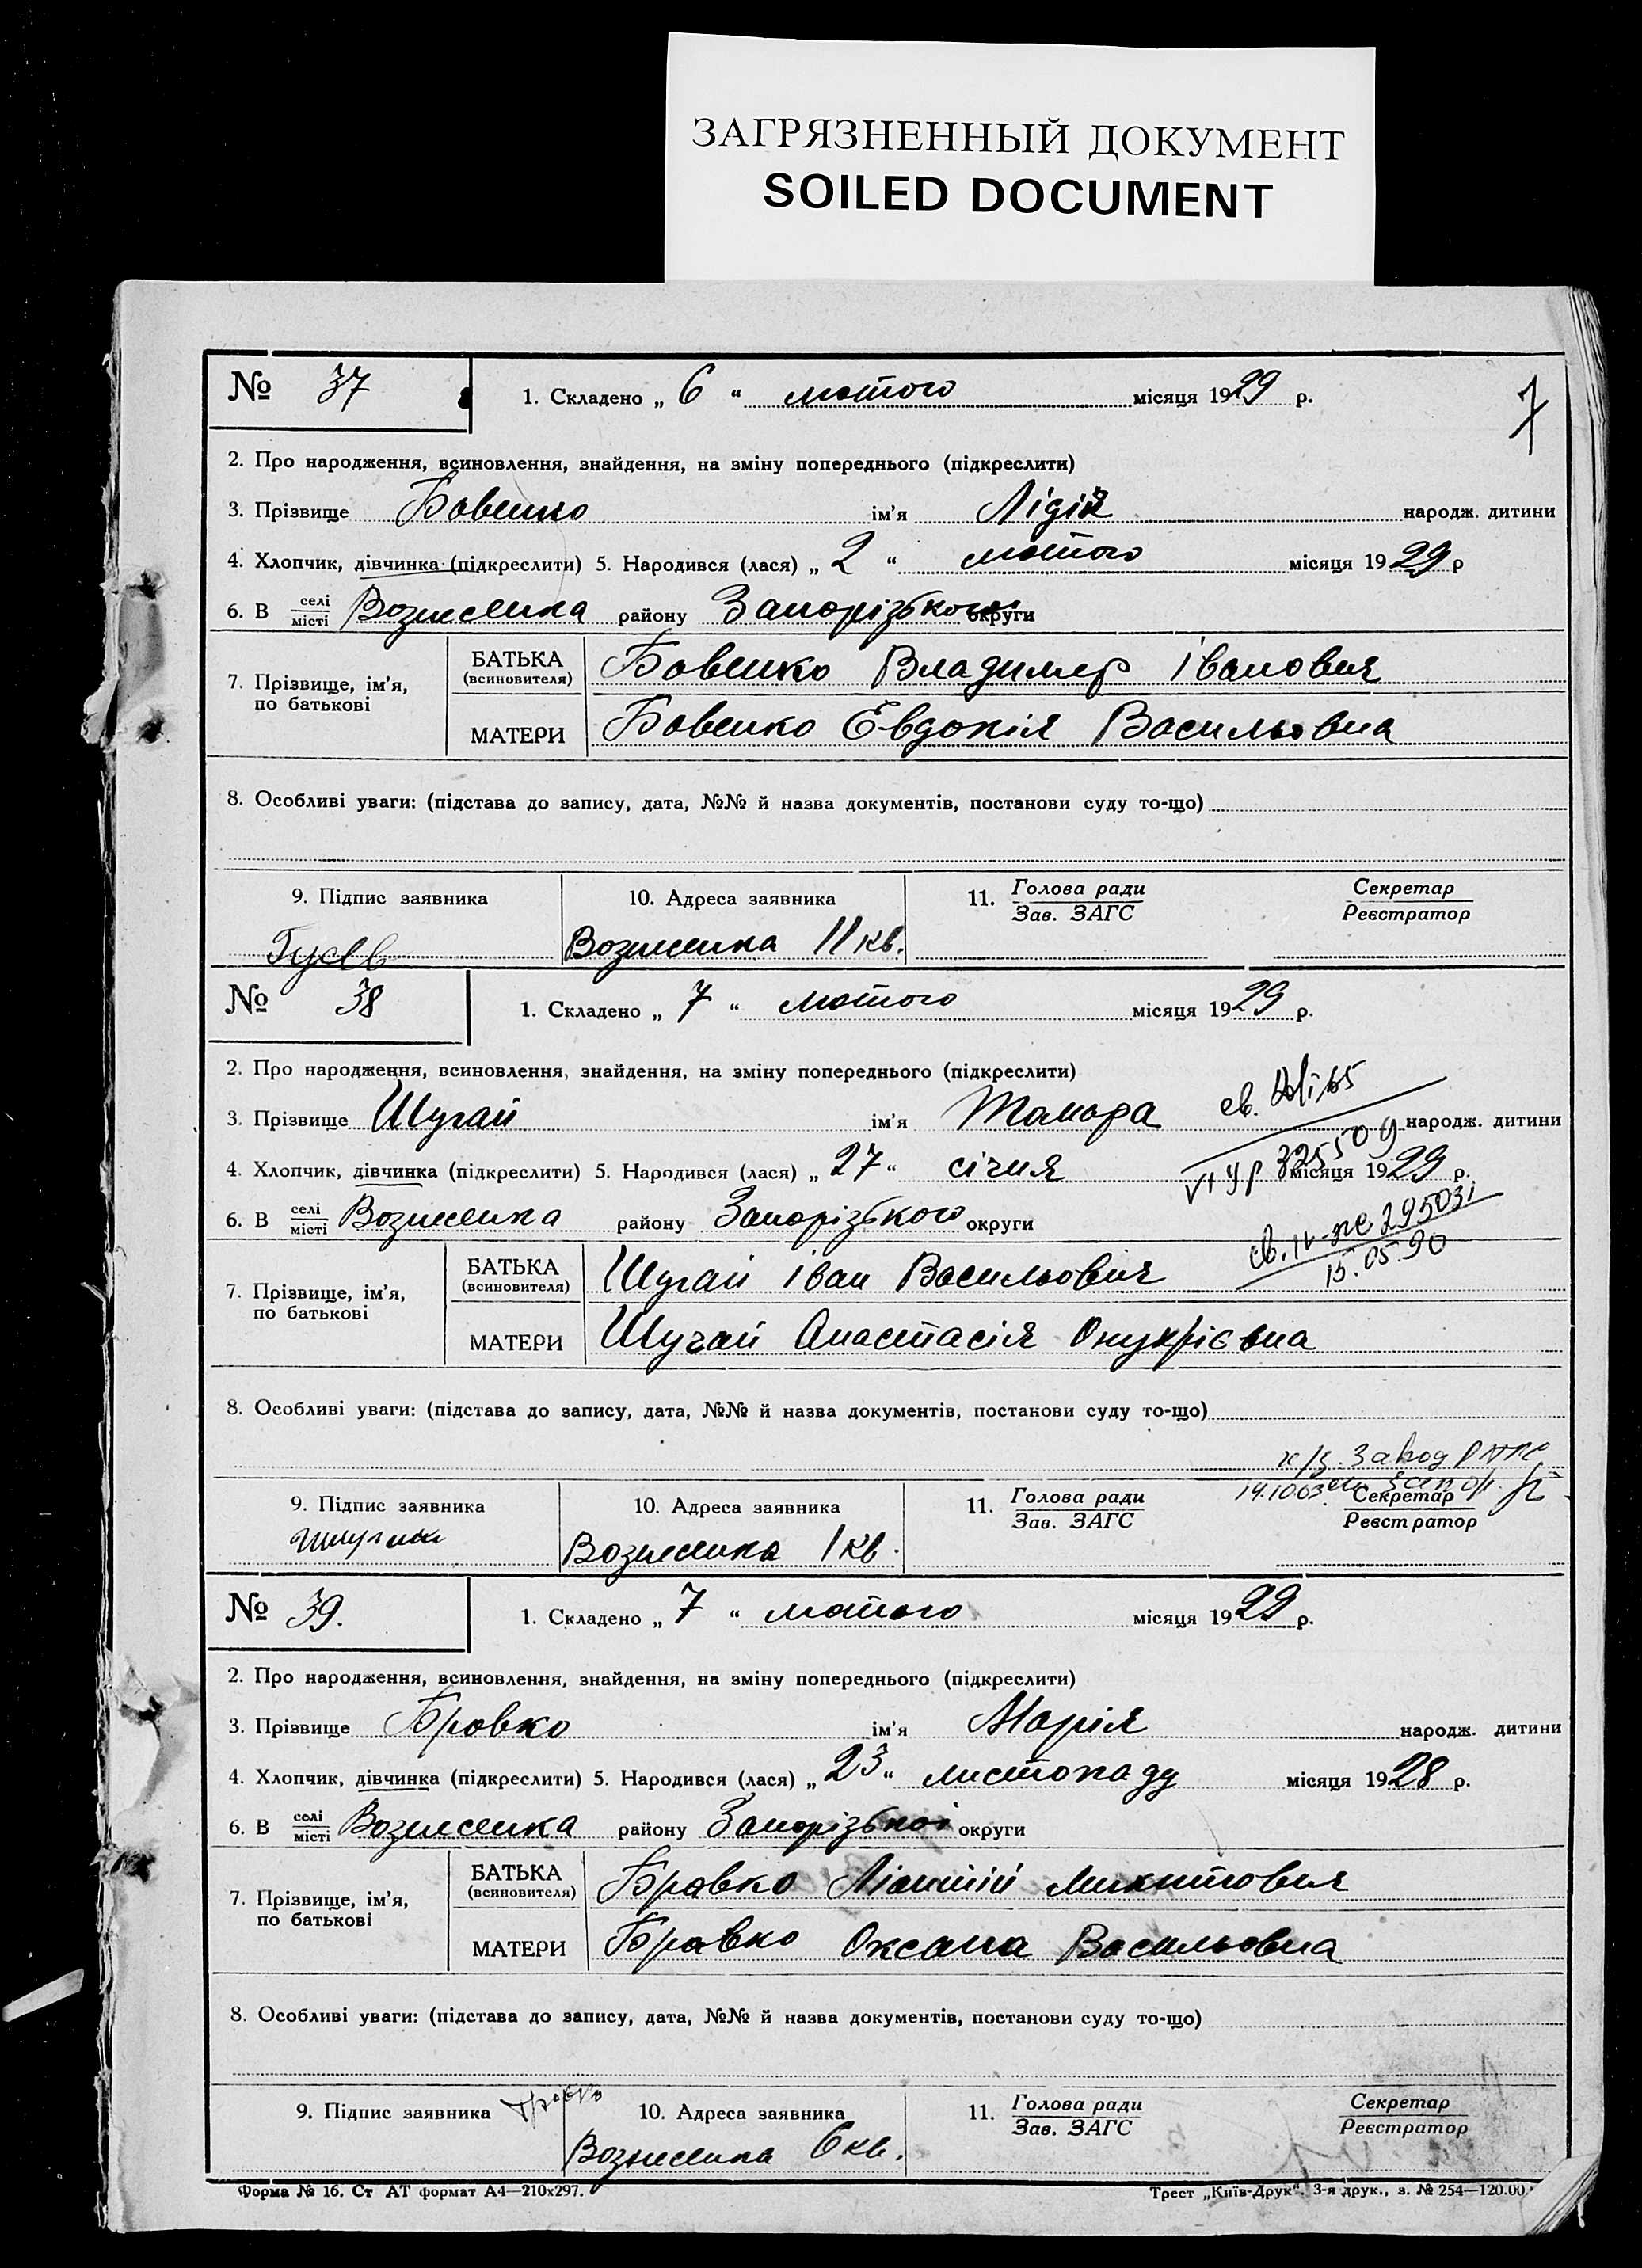 ЗАГРЯЗНЕННЫЙ ДОКУМЕНТ
SOILED DOCUMENT
7
№ 37 1. Складено „ 6 “ лютого місяця 1929 р.
2. Про народження, всиновлення, знайдення, на зміну попереднього (підкреслити)
3. Прізвище Бовенко ім’я Лідія народж. дитини
4. Хлопчик, дівчинка (підкреслити) 5. Народився (лася) „ 2 “ лютого місяця 1929 р
6. В селі/місті Вознесенка району Запорізького округи
7. Прізвище, ім’я, по батькові
БАТЬКА (всиновителя) Бовенко Владимир Іванович
МАТЕРИ Бовенко Евдокія Васильовна
8. Особливі уваги: (підстава до запису, дата, №№ й назва документів, постанови суду то-що)
9. Підпис заявника 10. Адреса заявника 11. Голова ради/Зав. ЗАГС Секретар/Реєстратор
Гусев Вознесенка 11 кв.
№ 38 1. Складено „ 7 “ лютого місяця 1929 р.
2. Про народження, всиновлення, знайдення, на зміну попереднього (підкреслити)
3. Прізвище Шугай ім’я Тамара св. народж. дитини
4. Хлопчик, дівчинка (підкреслити) 5. Народився (лася) „ 27 “ січня місяця 1929 р.
VI УР 325509
6. В селі/місті Вознесенка району Запорізького округи
св. IV-ЖС 295031
15.05.90
7. Прізвище, ім’я, по батькові
БАТЬКА (всиновителя) Шугай Іван Васильович
МАТЕРИ Шугай Анастасія Онуфрієвна
8. Особливі уваги: (підстава до запису, дата, №№ й назва документів, постанови суду то-що)
9. Підпис заявника 10. Адреса заявника 11. Голова ради/Зав. ЗАГС Секретар/Реєстратор
Вознесенка 1 кв.
№ 39. 1. Складено „ 7 “ лютого місяця 1929 р.
2. Про народження, всиновлення, знайдення, на зміну попереднього (підкреслити)
3. Прізвище Бровко ім’я Марія народж. дитини
4. Хлопчик, дівчинка (підкреслити) 5. Народився (лася) „ 23 “ листопаду місяця 1928 р.
6. В селі/місті Вознесенка району Запорізької округи
7. Прізвище, ім’я, по батькові
БАТЬКА (всиновителя) Бровко Микитович
МАТЕРИ Бровко Оксана Васильовна
8. Особливі уваги: (підстава до запису, дата, №№ й назва документів, постанови суду то-що)
9. Підпис заявника 10. Адреса заявника 11. Голова ради/Зав. ЗАГС Секретар/Реєстратор
Вознесенка 6 кв.
Форма № 16. Ст АТ формат А4—210х297. Трест „Київ-Друк“. 3-я друк., з. № 254—120.00